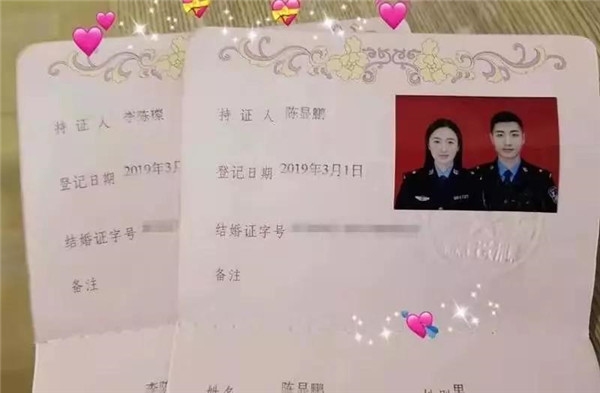 持证人 李陈檬
登记日期 2019年3月
结婚证字号
备注
持证人 陈显鹏
登记日期 2019年3月1日
结婚证字号
备注
姓名 陈显鹏 性别 男